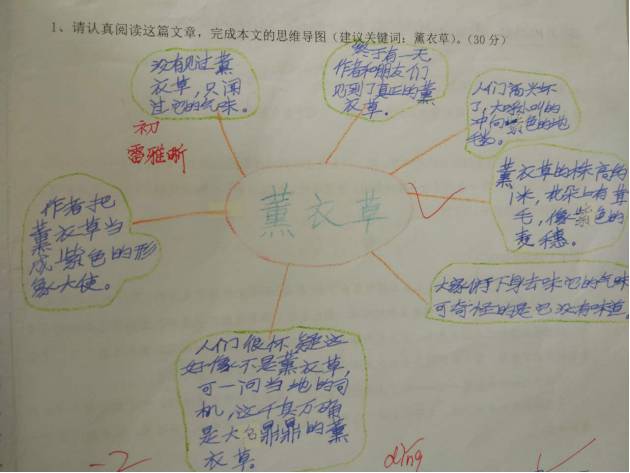 1、请认真阅读这篇文章，完成本文的思维导图（建议关键词：薰衣草）。（30分）
没有见过薰
衣草，只闻
过它的气味。
终于有一天
作者和朋友们
见到了真正的薰
衣草。
人们高兴坏
了，大呼小叫的
冲向紫色的地
毯。
初
雷雅晰
薰衣草的株高约
1米，花朵上有茸
毛，像紫色的
麦穗。
薰衣草
作者把
薰衣草当
成紫色的形
象大使。
大家俯下身去味它的气味
可奇怪的是它没有味道
人们很怀疑这
好像不是薰衣草，
可一问当地的司
机，这千真万确
是大名鼎鼎的薰
衣草。
-2
ding